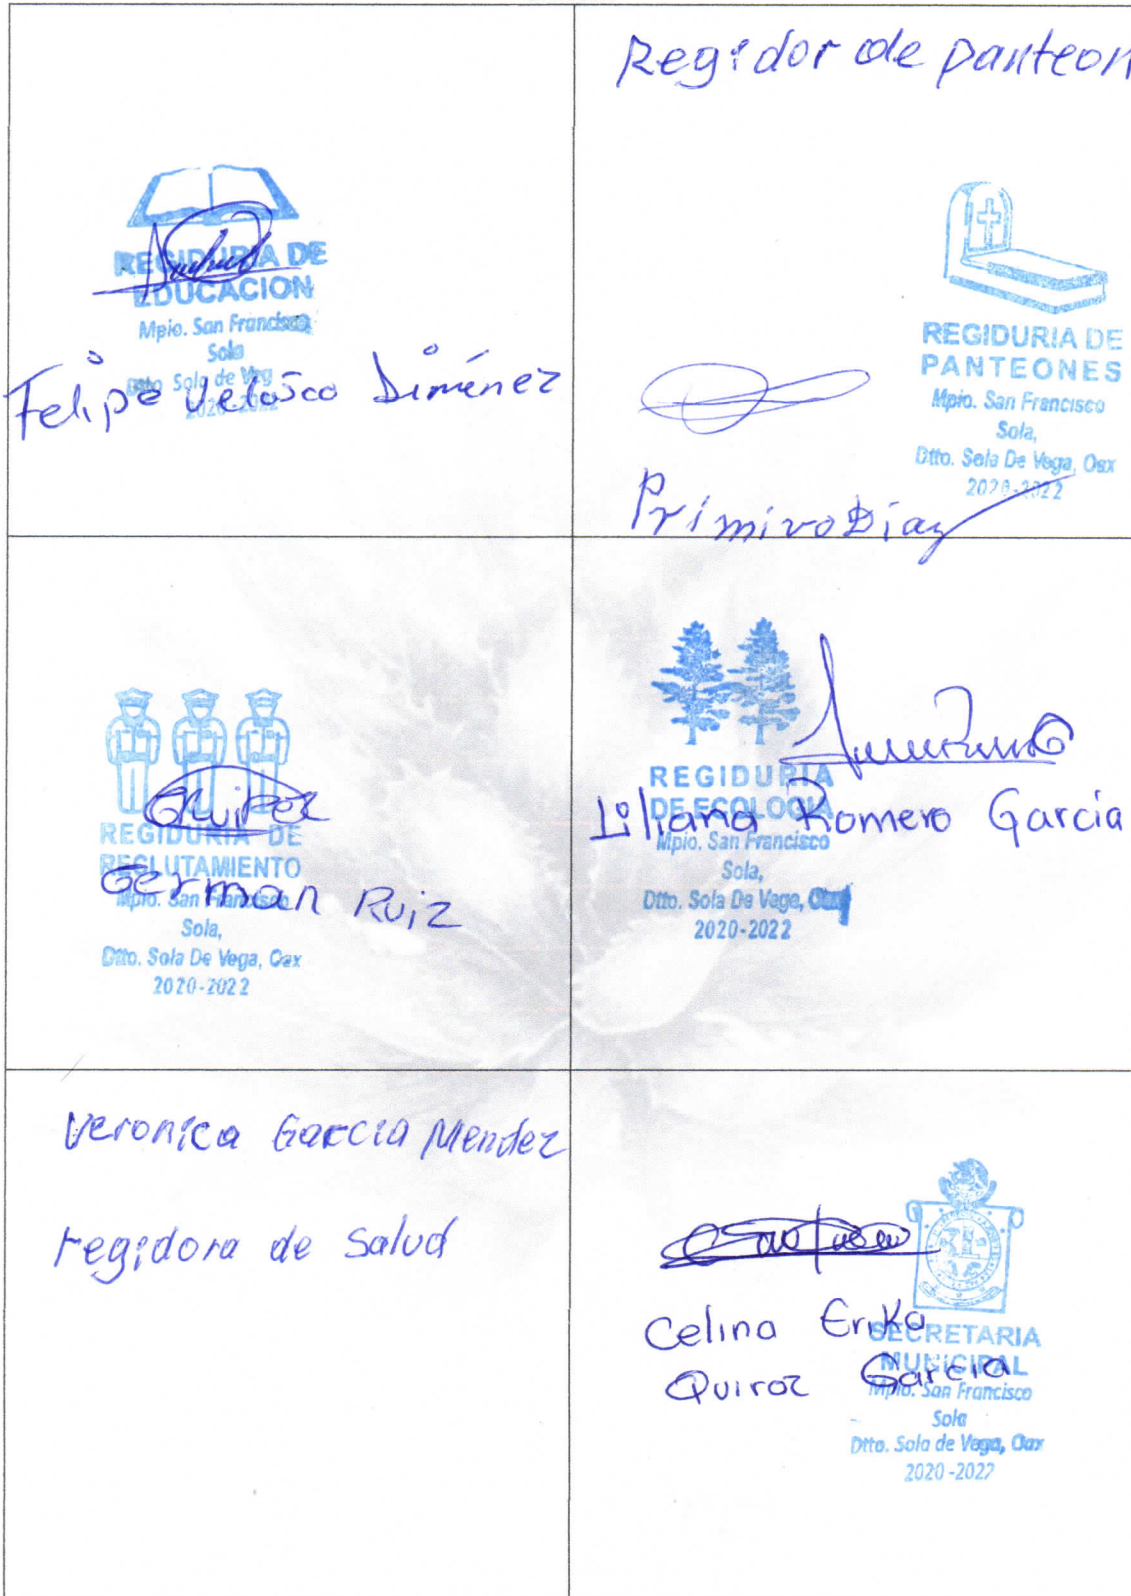 REGIDURIA DE
EDUCACION
Mpio. San Francisco
Sola
Dtto Sola de Veg
2020-2022
Felipe Velasco Jiménez
Regidor de panteon
REGIDURIA DE
PANTEONES
Mpio. San Francisco
Sola,
Dtto. Sola De Vega, Oax
2020-2022
Primivo Díaz
REGIDURIA DE
RECLUTAMIENTO
Mpio. San Francisco
Sola,
Dtto. Sola De Vega, Oax
2020-2022
German Ruiz
REGIDURIA
DE ECOLOGIA
Mpio. San Francisco
Sola,
Dtto. Sola De Vega, Oax
2020-2022
Liliana Romero Garcia
Veronica Garcia Mendez
regidora de Salud
SECRETARIA
MUNICIPAL
Mpio. San Francisco
Sola
Dtto. Sola de Vega, Oax
2020-2022
Celina Erika
Quiroz Garcia